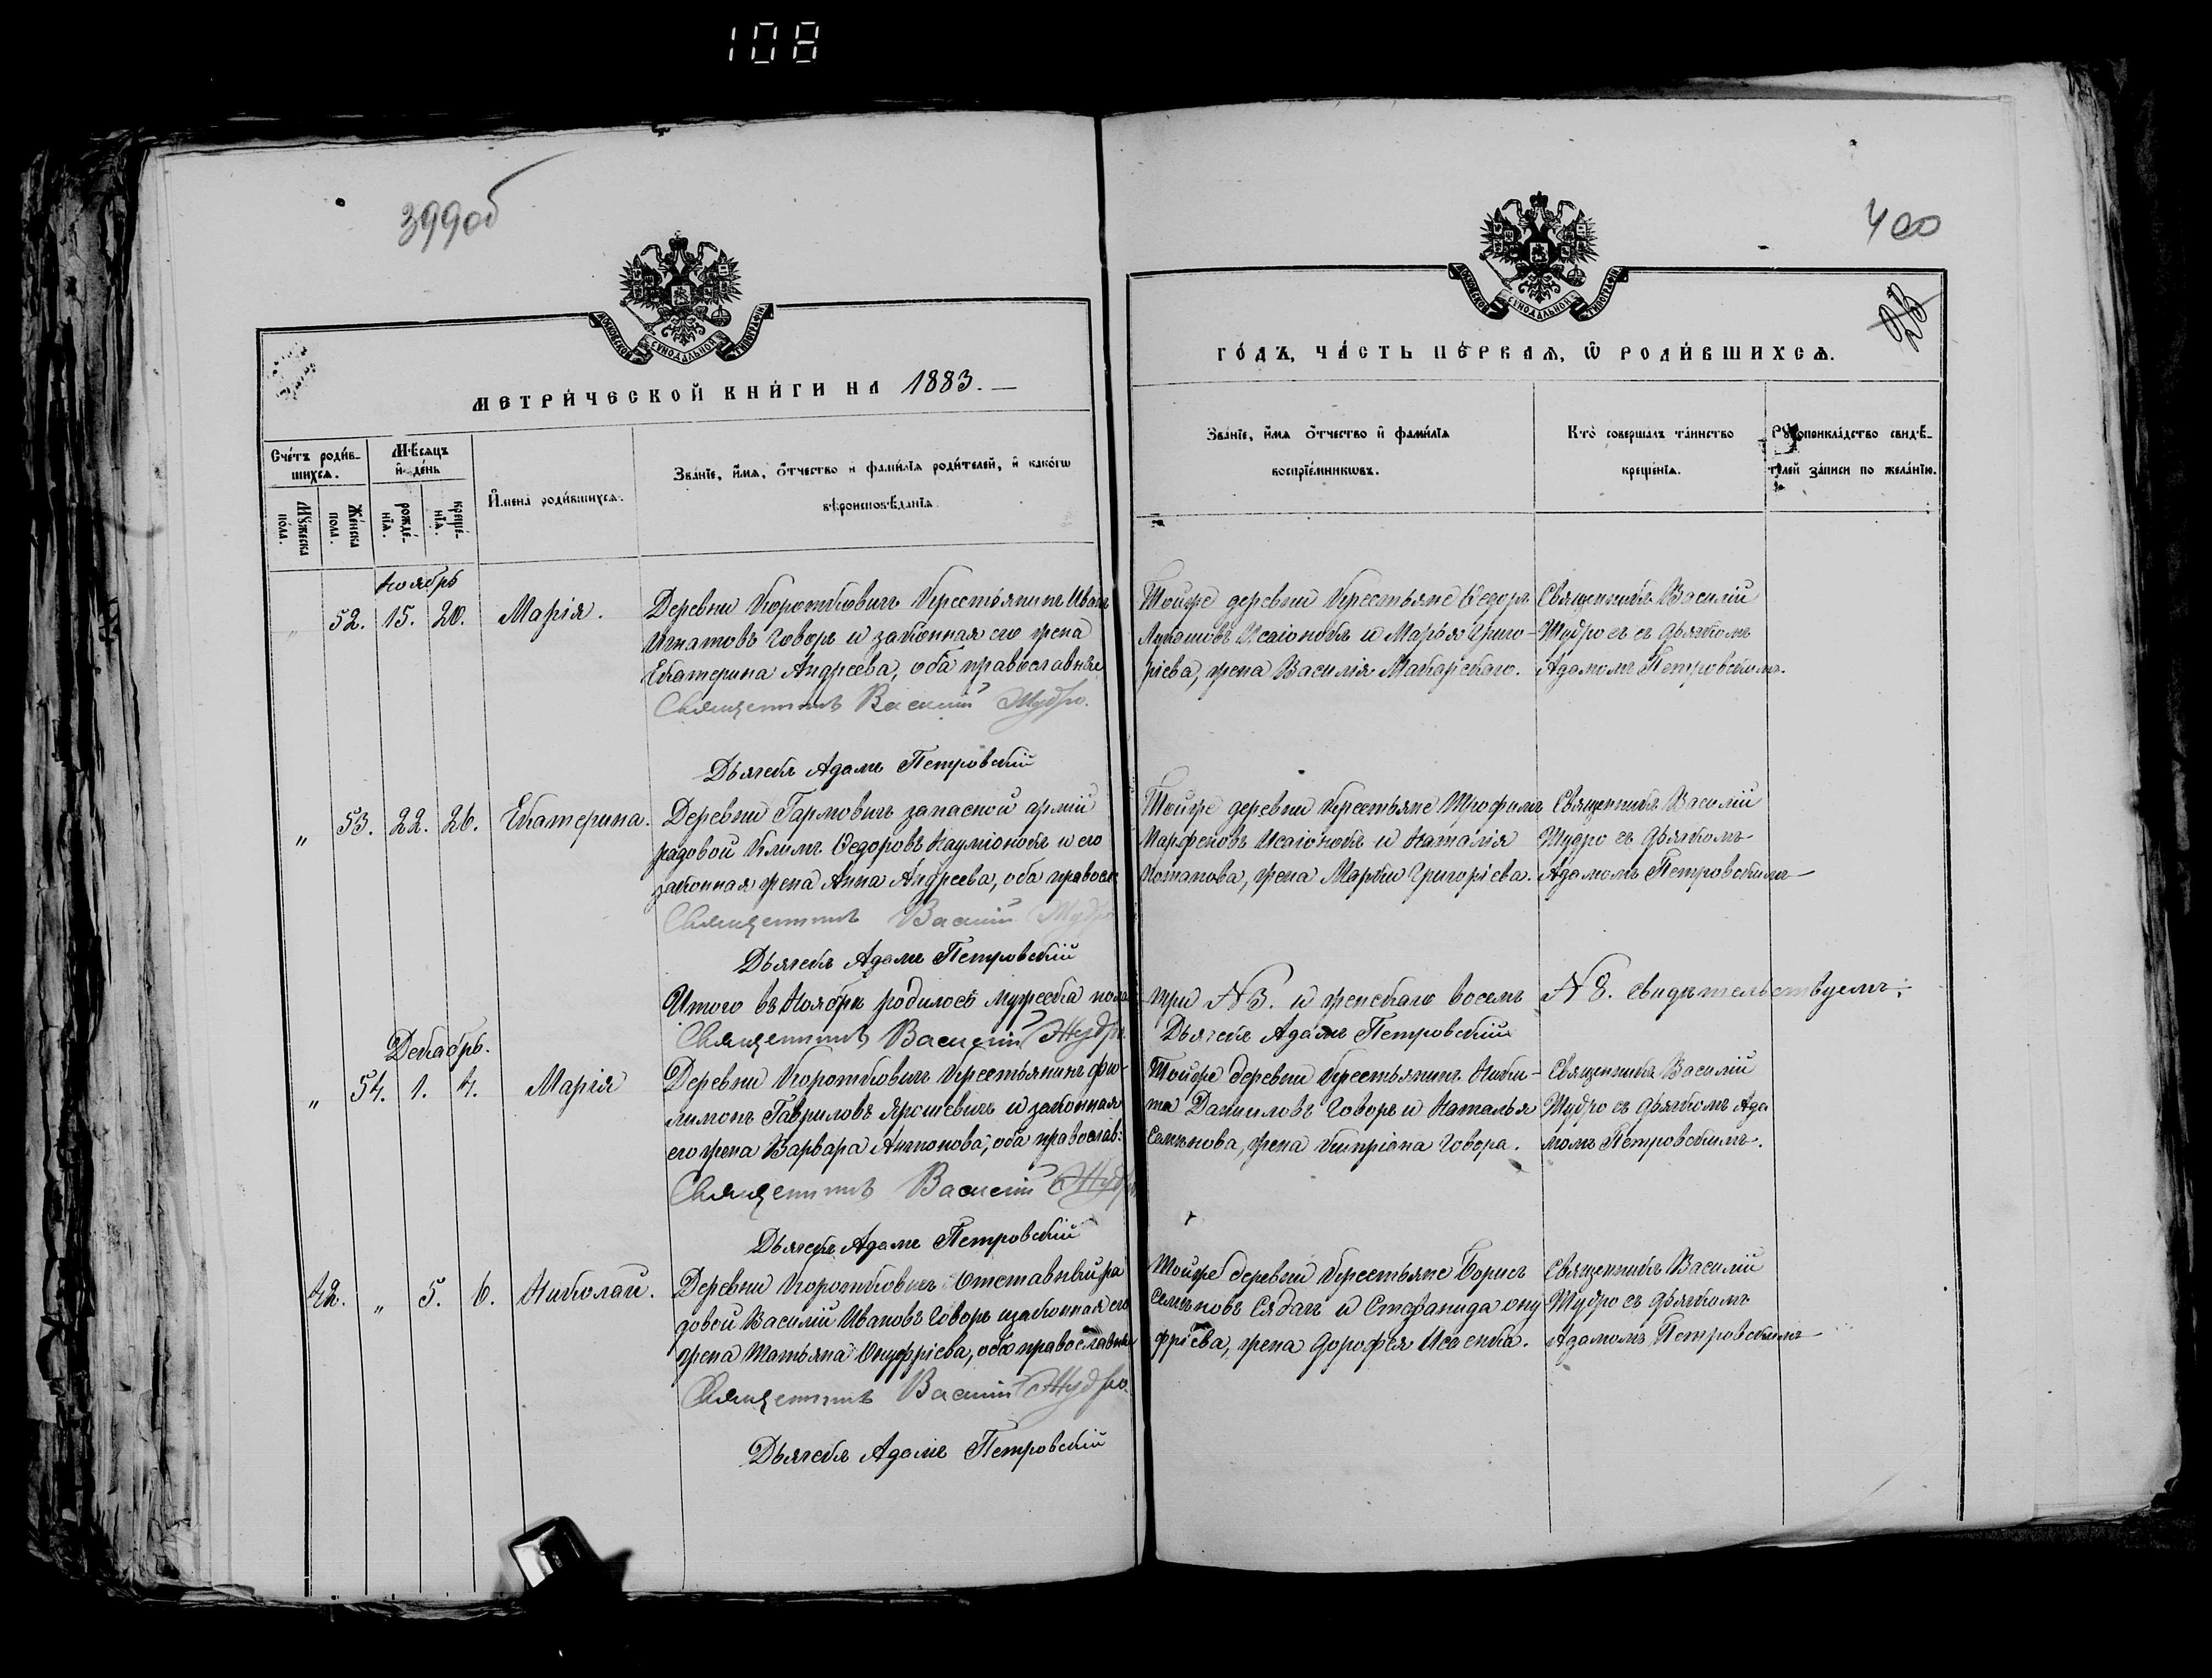 108
399об
400
МОСКОВСКОЙ СѴНОДАЛЬНОЙ ТИПОГРАФІИ
МОСКОВСКОЙ СѴНОДАЛЬНОЙ ТИПОГРАФІИ
МЕТРИ́ЧЕСКОЙ КНИ́ГИ НА 1883. —
ГО́ДЪ, ЧА́СТЬ ПЕ́РВАѦ, Ѡ҆ РОДИ́ВШИХСѦ.
Сче́тъ роди́в-
шихсѧ.
Мꙋ́жеска по́ла.
Же́нска по́ла.
Мѣ́сѧцъ и҆ де́нь
рожде́-нїѧ.
креще́-нїѧ.
И҆мена̀ роди́вшихсѧ.
Зва́нїе, и҆́мѧ, ѻ҆́тчество и҆ фами́лїѧ роди́телей, и҆ како́гѡ
вѣроисповѣ́данїѧ.
Зва́нїе, и҆́мѧ ѻ҆́тчество и҆ фами́лїѧ
воспрїе́мникѡвъ.
Кто̀ соверша́лъ та́инство
креще́нїѧ.
Рꙋкоприкла́дство свидѣ́-
телей за́писи по жела́нїю.
Ноябрь
„ 52. 15. 20. Марія.
Деревни Коротковичъ Крестьянинъ Иванъ
Игнатовъ Говоръ и законная его жена
Екатерина Андреева, оба православные
Священникъ Василий Жудро.
Дьячекъ Адамъ Петровскій
Тойже деревни Крестьяне Ѳедоръ
Исаіонокъ и Марья Григо-
ріева, жена Василія Макарскаго.
Священникъ Василій
Жудро съ дьячкомъ
Адамомъ Петровскимъ.
„ 53. 22. 26. Екатерина.
Деревни Гармовичъ запасной арміи
рядовой Климъ Ѳедоровъ Науміонокъ и его
законная жена Анна Андреева, оба правосл
Священникъ Василий Жудро
Дьячекъ Адамъ Петровскій
Тойже деревни Крестьяне Трофимъ
Парфеновъ Исаіонокъ и Наталія
Потапова, жена Марки Григоріева.
Священникъ Василій
Жудро съ дьячкомъ
Адамомъ Петровскимъ —
Итого въ Ноябрѣ родилось мужеска пола
три № 3. и женскаго восемь № 8. свидѣтельствуемъ:
Священникъ Василий Жудро.
Дьячекъ Адамъ Петровскій
Декабрь.
„ 54. 1. 4. Марія
Деревни Коротковичъ Крестьянинъ Фи-
лимонъ Гавриловъ Ярошевичъ и законная
его жена Варвара Антонова, оба православ:
Священникъ Василий Жудро
Дьячекъ Адамъ Петровскій
Тойже деревни Крестьянинъ Ники-
та Даниловъ Говоръ и Наталья
Семенова, жена Кипріана Говора.
Священникъ Василій
Жудро съ дьячкомъ Ада
момъ Петровскимъ.
42. „ 5. 6. Николай.
Деревни Коротковичъ Отставный ря
довой Василій Ивановъ Говоръ и законная его
жена Татьяна Онуфріева, оба православные
Священникъ Василий Жудро.
Дьячекъ Адамъ Петровскій
Тойже деревни Крестьяне Борисъ
Семеновъ Сядачъ и Стефанида Ону
фріева, жена Дорофея Исаенка.
Священникъ Василій
Жудро съ дьячкомъ
Адамомъ Петровскимъ —